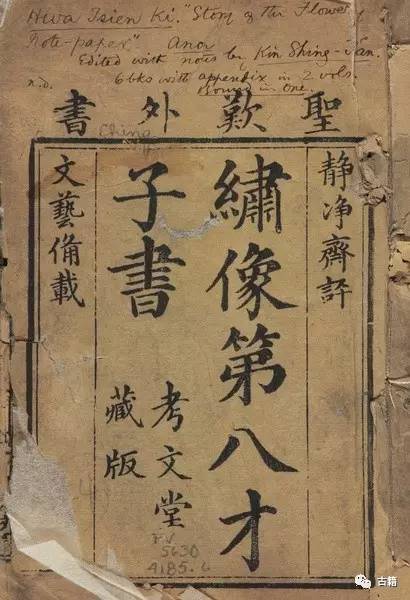 Hwa Tsien Ki. "Story of the Flowery
Note-paper." Anon
Edited with notes by Kin Shing-Tan.
n.d. 6 bks with appendix in 2 vols.
bound in one.
聖歎外書
China
静净齋評
繡像第八才
子書
考文堂
藏版
文藝備載
5630
4185.6
古籍